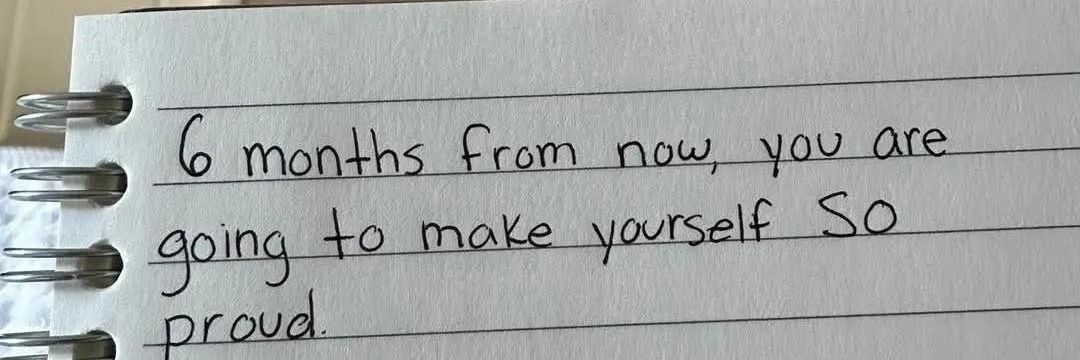 6 months from now, you are
going to make yourself so
proud.